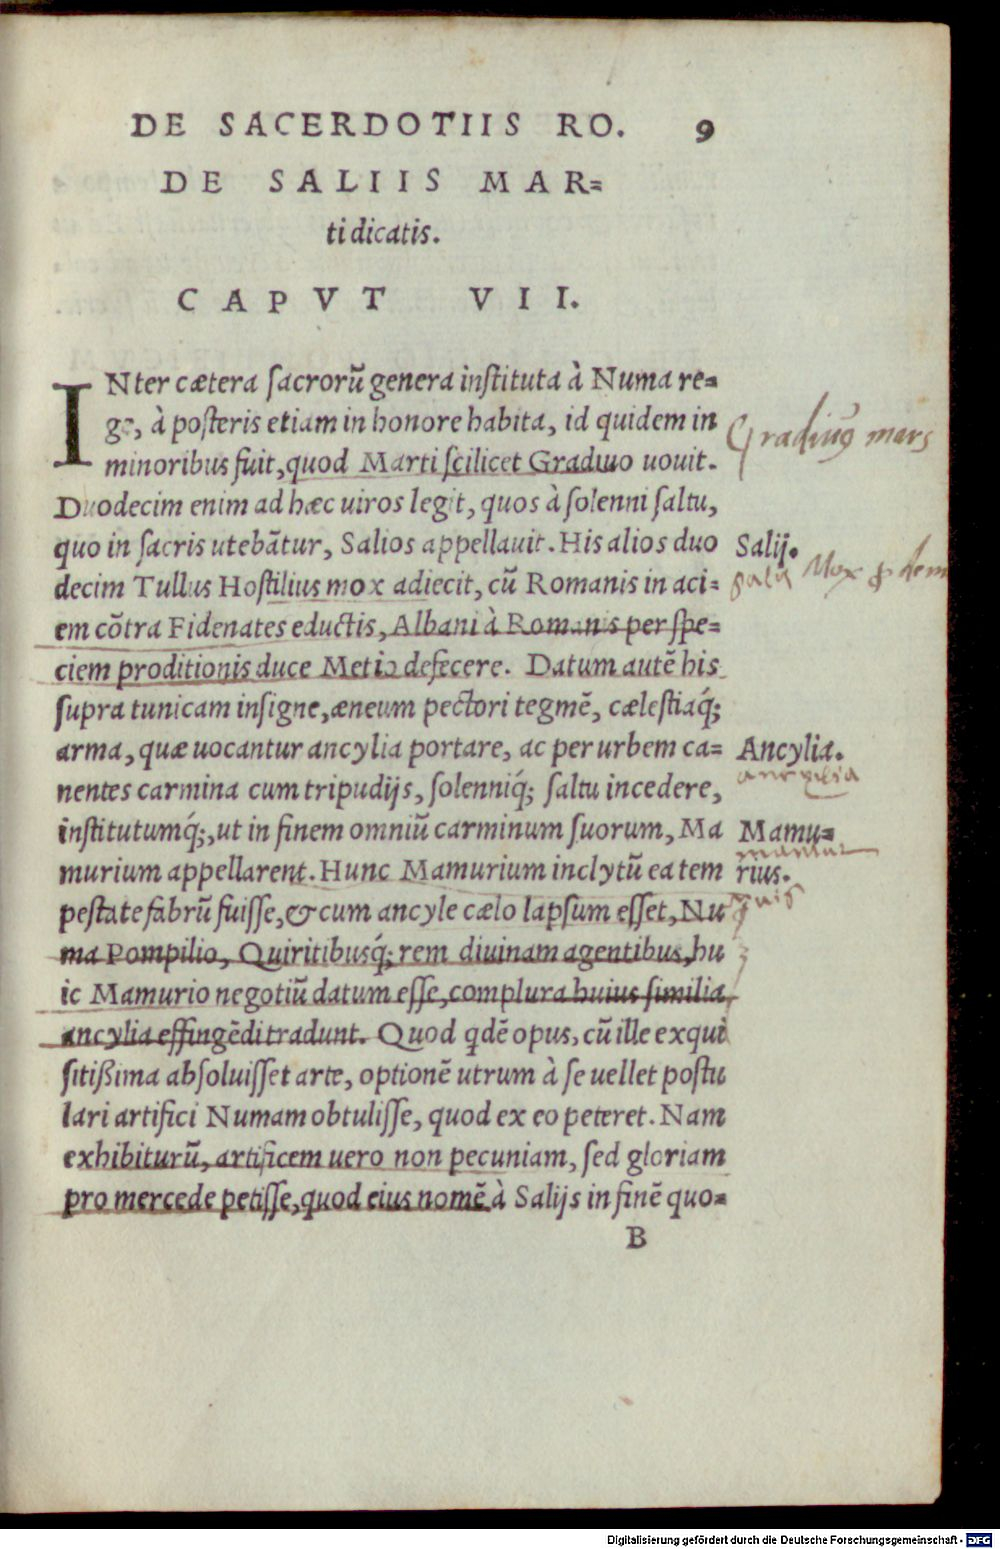 DE SACERDOTIIS RO. 9
DE SALIIS MAR=
ti dicatis.
CAPVT VII.
INter cætera sacrorũ genera instituta à Numa re=
ge, à posteris etiam in honore habita, id quidem in
minoribus fuit, quod Marti scilicet Gradiuo uouit.
Gradiuus mars
Duodecim enim ad hæc uiros legit, quos à solenni saltu,
quo in sacris utebãtur, Salios appellauit. His alios duo
Salij.
decim Tullus Hostilius mox adiecit, cũ Romanis in aci=
salii Mox
em cõtra Fidenates eductis, Albani à Romanis per spe=
ciem proditionis duce Metio defecere. Datum autẽ his
supra tunicam insigne, æneum pectori tegmẽ, cælestiaq́;
arma, quæ uocantur ancylia portare, ac per urbem ca=
Ancylia.
nentes carmina cum tripudijs, solenniq́; saltu incedere,
ancylia
institutumq́;, ut in finem omniũ carminum suorum, Ma
Mamu=
murium appellarent. Hunc Mamurium inclytũ ea tem
rius.
pestate fabrũ fuisse, & cum ancyle cælo lapsum esset, Nu
quis
ma Pompilio, Quiritibusq́; rem diuinam agentibus, hu
ic Mamurio negotiũ datum esse, complura huius similia
ancylia effingẽdi tradunt. Quod qdẽ opus, cũ ille exqui
sitißima absoluisset arte, optionẽ utrum à se uellet postu
lari artifici Numam obtulisse, quod ex eo peteret. Nam
exhibiturũ, artificem uero non pecuniam, sed gloriam
pro mercede petisse, quod eius nomẽ à Salijs in finẽ quo=
B
Digitalisierung gefördert durch die Deutsche Forschungsgemeinschaft - DFG